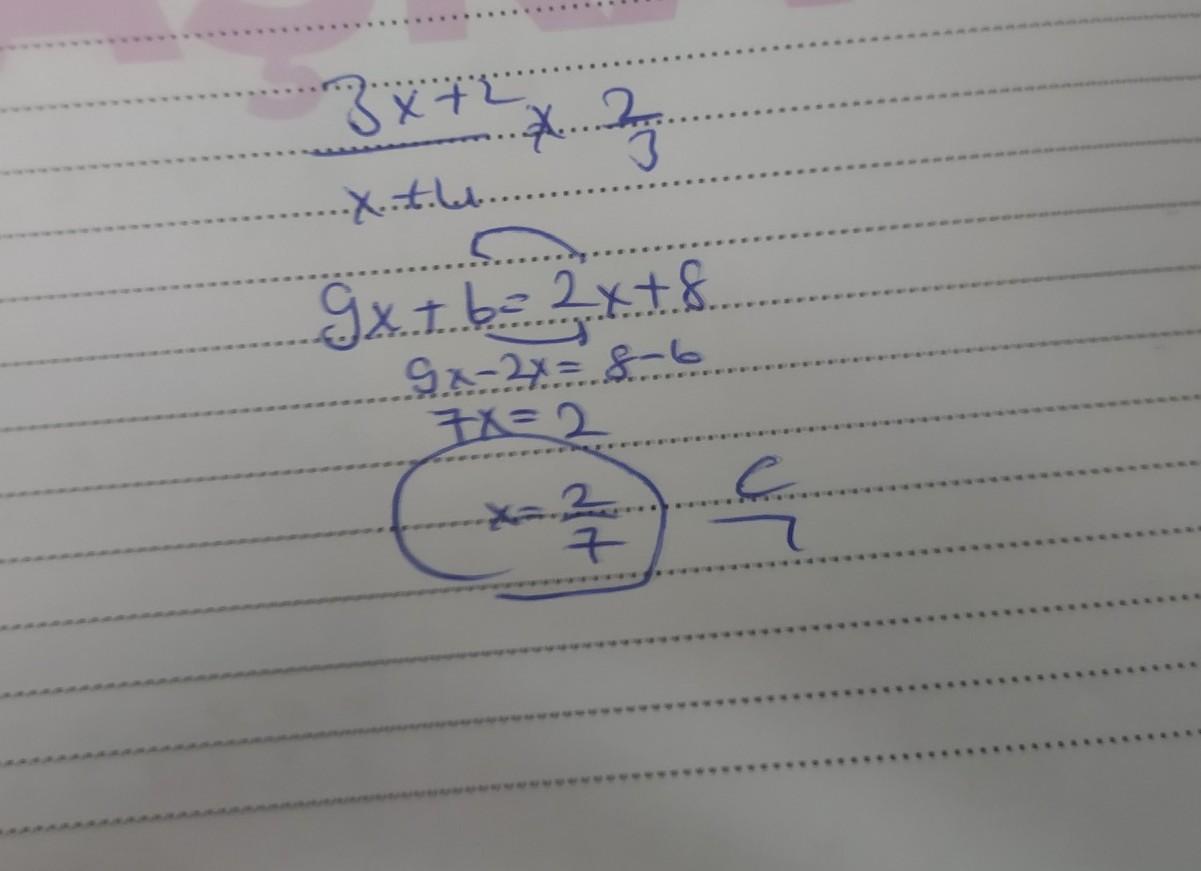 3x+2/x+4 × 2/3
9x+6=2x+8
9x-2x=8-6
7x=2
x=2/7 C